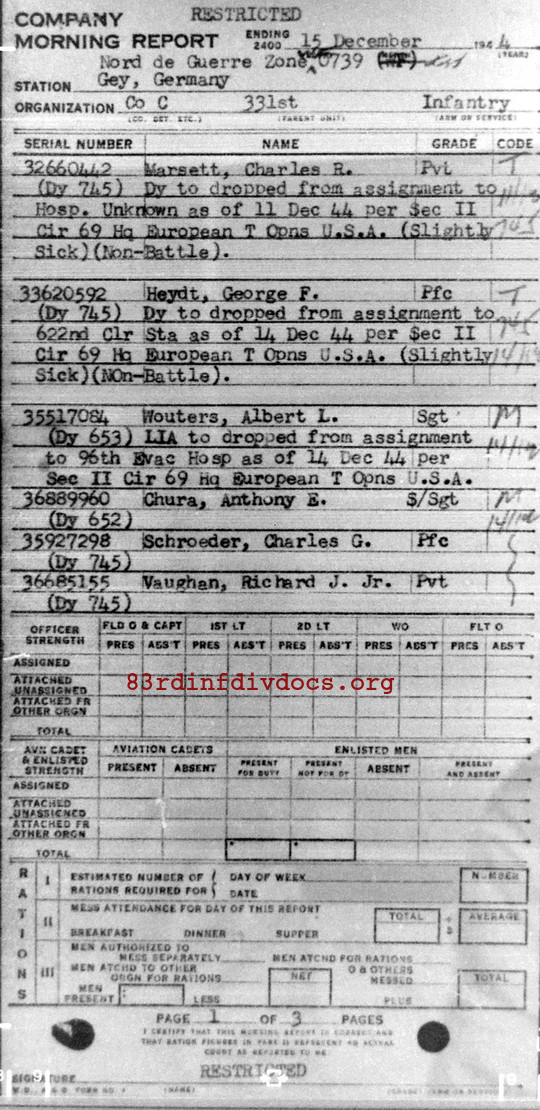 RESTRICTED
COMPANY
MORNING REPORT ENDING 2400 15 December 1944 (YEAR)
Nord de Guerre Zone 0739
STATION Gey, Germany
ORGANIZATION Co C 331st Infantry
(CO. DET. ETC.) (PARENT UNIT) (ARM OR SERVICE)
SERIAL NUMBER NAME GRADE CODE
32660442 Marsett, Charles R. Pvt T
(Dy 745) Dy to dropped from assignment to
Hosp. Unknown as of 11 Dec 44 per Sec II
Cir 69 Hq European T Opns U.S.A. (Slightly
Sick)(Non-Battle).
33620592 Heydt, George F. Pfc T
(Dy 745) Dy to dropped from assignment to 745
622nd Clr Sta as of 14 Dec 44 per Sec II
Cir 69 Hq European T Opns U.S.A. (Slightly
Sick)(NOn-Battle).
35517084 Wouters, Albert L. Sgt M
(Dy 653) LIA to dropped from assignment
to 96th Evac Hosp as of 14 Dec 44 per
Sec II Cir 69 Hq European T Opns U.S.A.
36889960 Chura, Anthony E. $/Sgt M
(Dy 652)
35927298 Schroeder, Charles G. Pfc
(Dy 745)
36685155 Vaughan, Richard J. Jr. Pvt
(Dy 745)
OFFICER STRENGTH FLD O & CAPT 1ST LT 2D LT WO FLT O
PRES ABS'T PRES ABS'T PRES ABS'T PRES ABS'T PRES ABS'T
ASSIGNED
ATTACHED UNASSIGNED
83rdinfdivdocs.org
ATTACHED FR OTHER ORGN
TOTAL
AVN CADET & ENLISTED STRENGTH AVIATION CADETS ENLISTED MEN
PRESENT ABSENT PRESENT FOR DUTY PRESENT NOT FOR DY ABSENT PRESENT AND ABSENT
ASSIGNED
ATTACHED UNASSIGNED
ATTACHED FR OTHER ORGN
TOTAL
RATIONS
I ESTIMATED NUMBER OF DAY OF WEEK NUMBER
RATIONS REQUIRED FOR DATE
II MESS ATTENDANCE FOR DAY OF THIS REPORT TOTAL ÷ 3 AVERAGE
BREAKFAST DINNER SUPPER
III MEN AUTHORIZED TO MESS SEPARATELY MEN ATCHD FOR RATIONS
MEN ATCHD TO OTHER ORGN FOR RATIONS NET O & OTHERS MESSED TOTAL
MEN PRESENT LESS PLUS
PAGE 1 OF 3 PAGES
I CERTIFY THAT THIS MORNING REPORT IS CORRECT AND
THAT RATION FIGURES IN PART II REPRESENT AN ACTUAL
COUNT AS REPORTED TO ME
RESTRICTED
SIGNATURE
W.D., A.G.O. FORM NO. 1 (NAME) (GRADE) (ARM OR SERVICE)